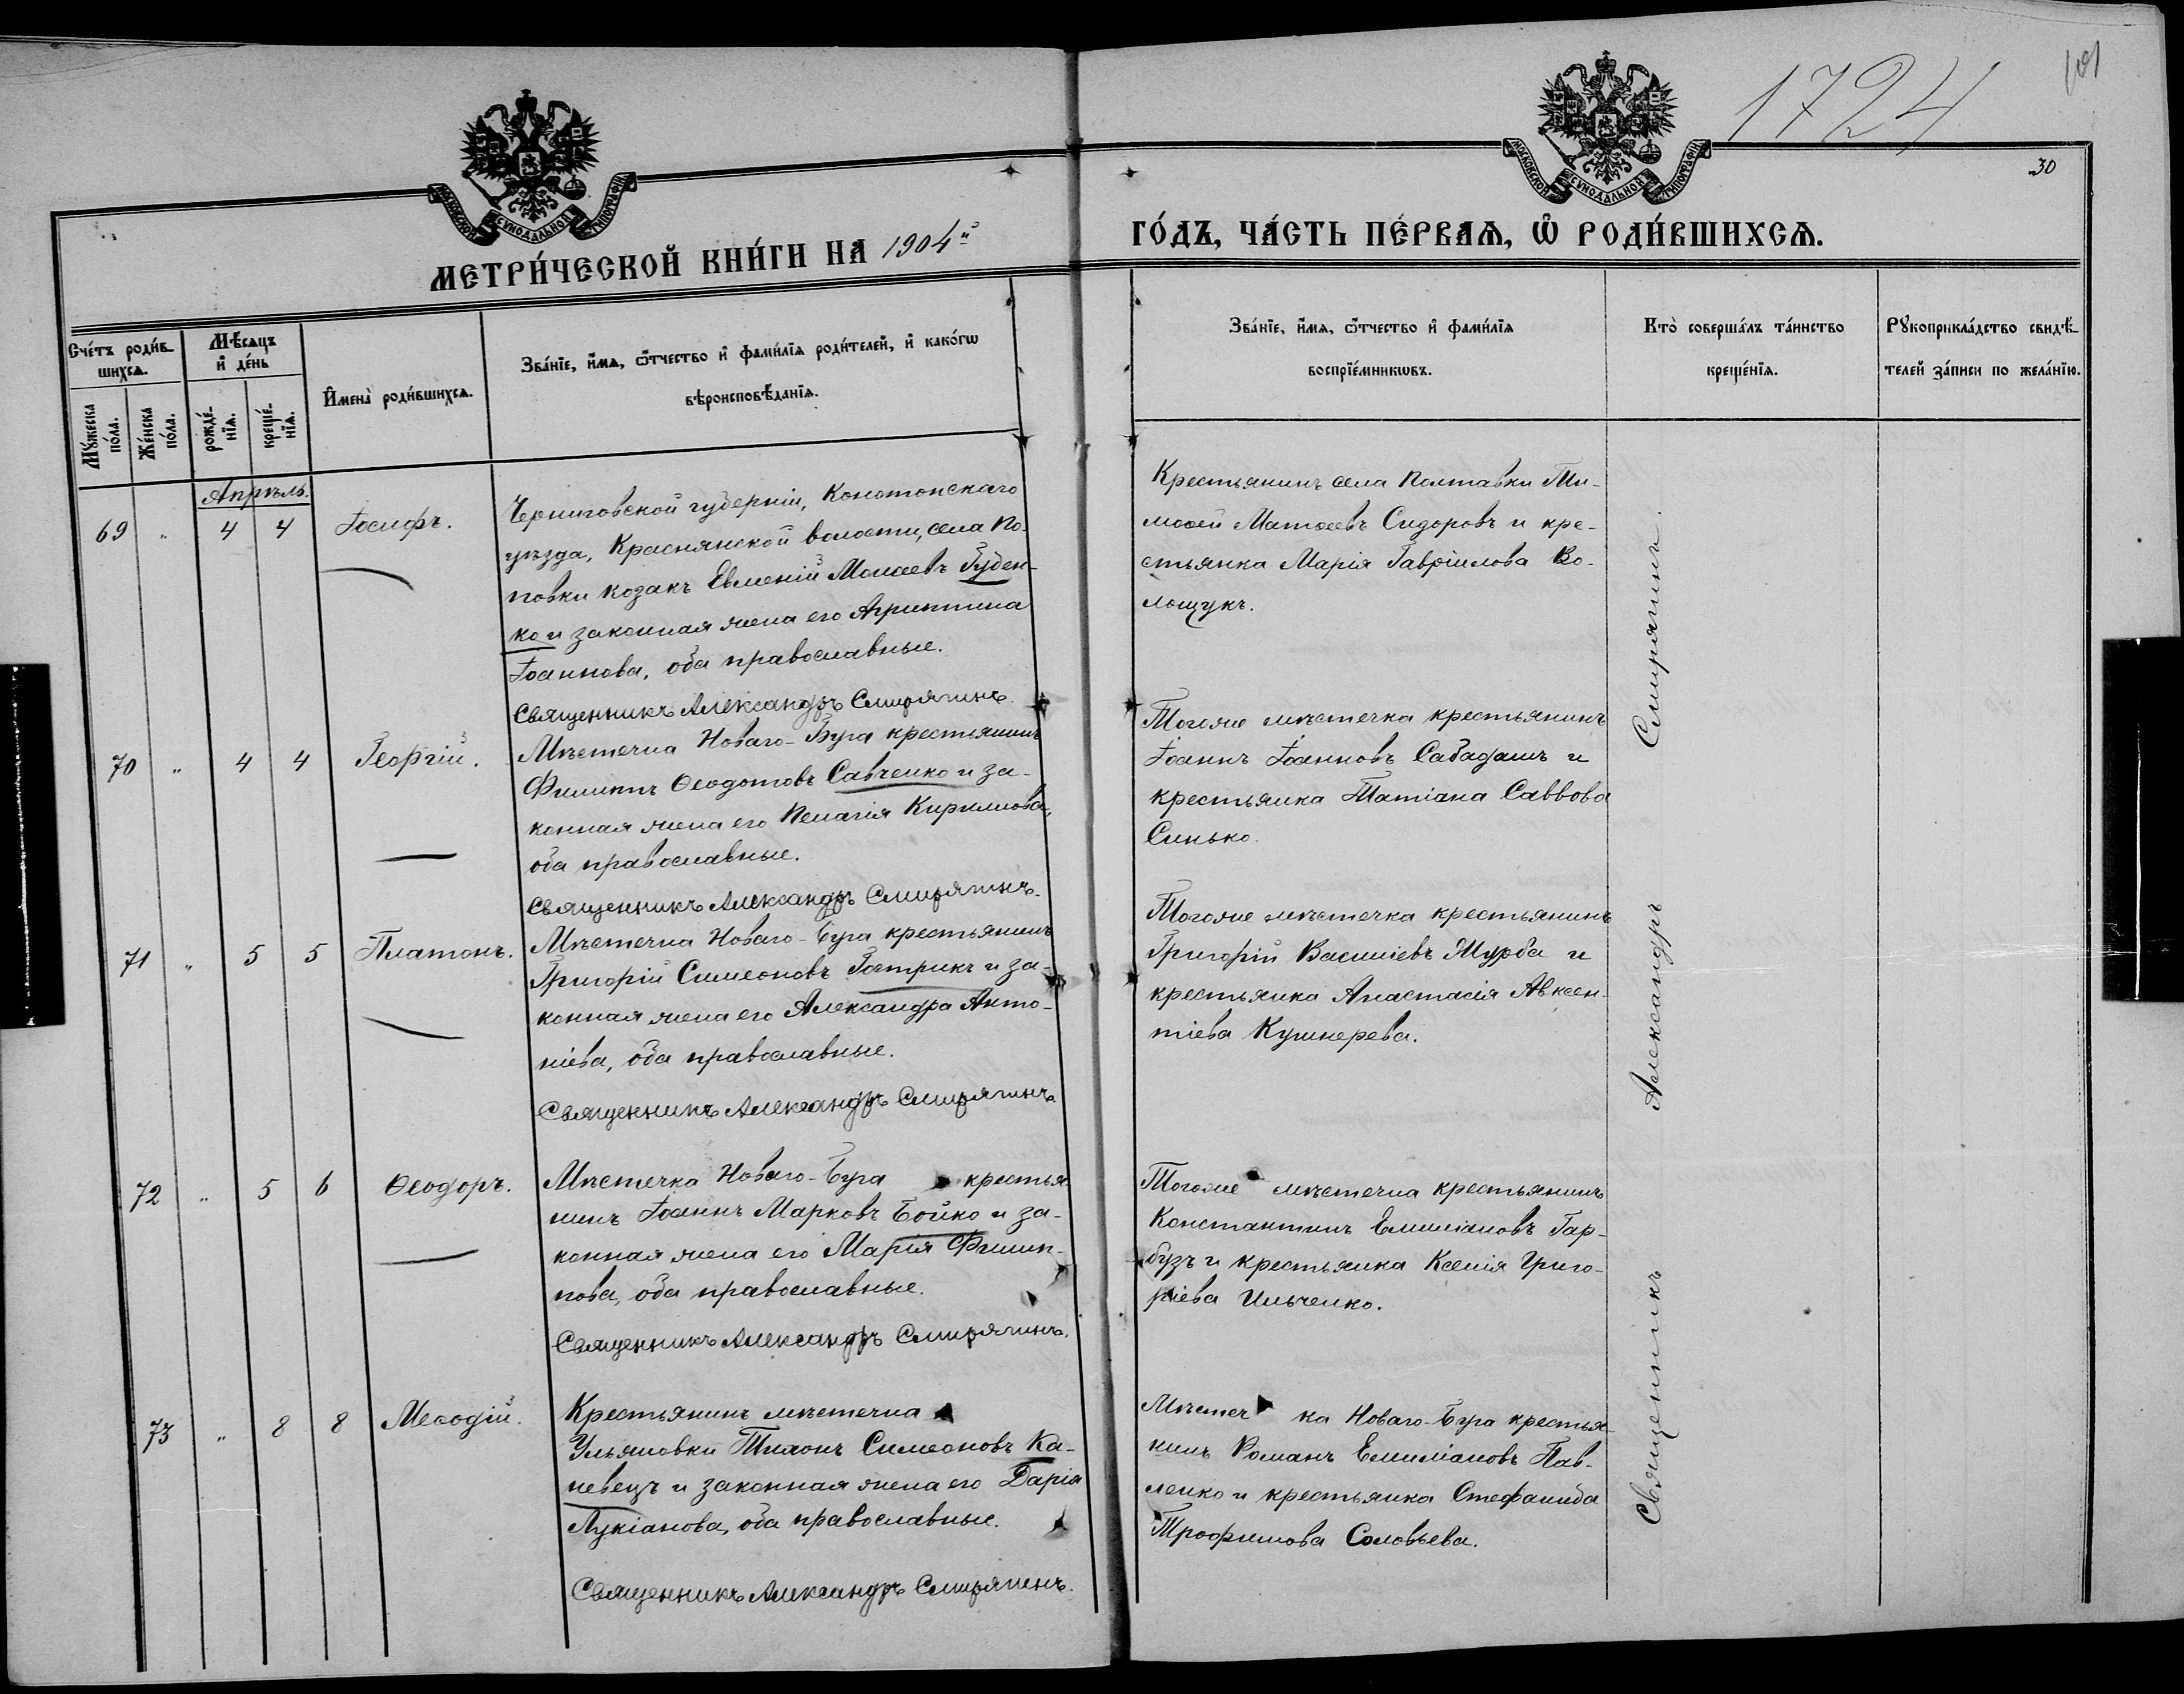 1724
101
30
МОСКОВСКОЙ СѴНОДАЛЬНОЙ ТИПОГРАФІИ
МОСКОВСКОЙ СѴНОДАЛЬНОЙ ТИПОГРАФІИ
МЕТРИ́ЧЕСКОЙ КНИ́ГИ НА 1904й ГО́ДЪ, ЧА́СТЬ ПЕ́РВАѦ, Ѡ҆ РОДИ́ВШИХСѦ.
Сче́тъ роди́вшихсѧ.
Мꙋ́жеска по́ла.
Же́нска по́ла.
Мѣ́сѧцъ и҆ де́нь
рожде́нїѧ.
креще́нїѧ.
И҆мена̀ роди́вшихсѧ.
Зва́нїе, и҆́мѧ, ѻ҆́тчество и҆ фами́лїѧ роди́телей, и҆ како́гѡ
вѣроисповѣ́данїѧ.
Зва́нїе, и҆́мѧ, ѻ҆́тчество и҆ фами́лїѧ
воспрїе́мникѡвъ.
Кто̀ соверша́лъ та́инство
креще́нїѧ.
Рꙋкоприкла́дство свидѣ́телей за́писи по жела́нїю.
Апрѣль.
69 " 4 4 Іосифъ.
Черниговской губерніи, Конотопскаго
уѣзда, Краснянской волости, села По-
повки козакъ Евменій Моисеевъ Гуден-
ко и законная жена его Агриппина
Іоаннова, оба православные.
Священникъ Александръ Смирягинъ.
Крестьянинъ села Полтавки Ти-
моѳей Матѳеевъ Сидоровъ и кре-
стьянка Марія Гавріилова Во-
лощукъ.
70 " 4 4 Георгій.
Мѣстечка Новаго-Буга крестьянинъ
Филиппъ Ѳеодотовъ Савченко и за-
конная жена его Пелагія Кириллова,
оба православные.
Священникъ Александръ Смирягинъ.
Тогоже мѣстечка крестьянинъ
Іоаннъ Іоанновъ Сабадашъ и
крестьянка Татіана Саввова
Синько.
71 " 5 5 Платонъ.
Мѣстечка Новаго-Буга крестьянинъ
Григорій Симеоновъ Гоптрикъ и за-
конная жена его Александра Анто-
ніева, оба православные.
Священникъ Александръ Смирягинъ.
Тогоже мѣстечка крестьянинъ
Григорій Василіевъ Журба и
крестьянка Анастасія Авксен-
тіева Кушнерева.
72 " 5 6 Ѳеодоръ.
Мѣстечка Новаго-Буга крестья-
нинъ Іоаннъ Марковъ Бойко и за-
конная жена его Марія Филип-
пова, оба православные.
Священникъ Александръ Смирягинъ.
Тогоже мѣстечка крестьянинъ
Константинъ Емиліановъ Гар-
бузъ и крестьянка Ксенія Григо-
ріева Ильченко.
73 " 8 8 Меѳодій.
Крестьянинъ мѣстечка
Ульяновки Тихонъ Симеоновъ Ка-
невецъ и законная жена его Дарія
Лукіанова, оба православные.
Священникъ Александръ Смирягинъ.
Мѣстечка Новаго-Буга крестья-
нинъ Романъ Емиліановъ Пав-
ленко и крестьянка Стефанида
Трофимова Соловьева.
Священникъ Александръ Смирягинъ.